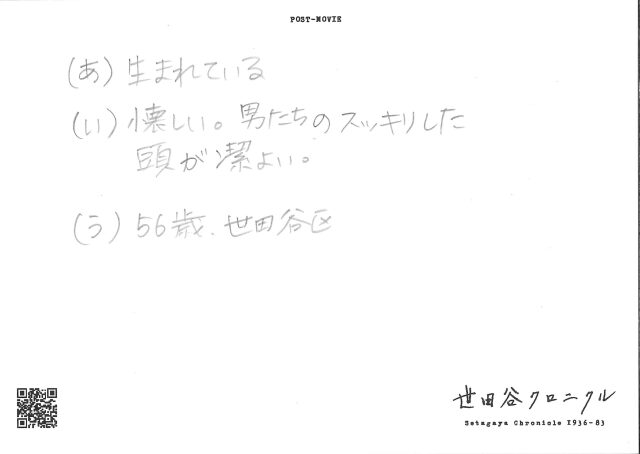 POST-MOVIE
(あ) 生まれている
(い) 懐しい。男たちのスッキリした
頭が潔よい。
(う) 56歳、世田谷区
世田谷クロニクル
Setagaya Chronicle 1936-83